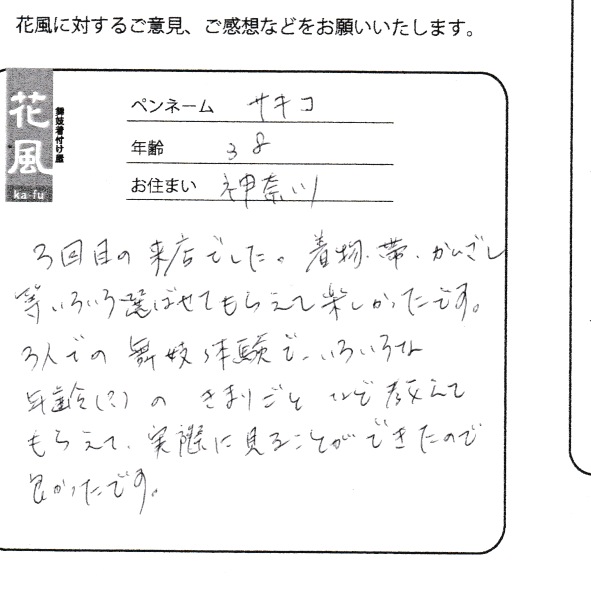 花風に対するご意見、ご感想などをお願いいたします。
花風
舞妓着付け屋
ka-fu
ペンネーム サキコ
年齢 38
お住まい 神奈川
3回目の来店でした。着物、帯、かんざし
等いろいろ選ばせてもらえて楽しかったです。
3人での舞妓体験で、いろいろな
年齢(?)のきまりごとなど教えて
もらえて、実際に見ることができたので
良かったです。